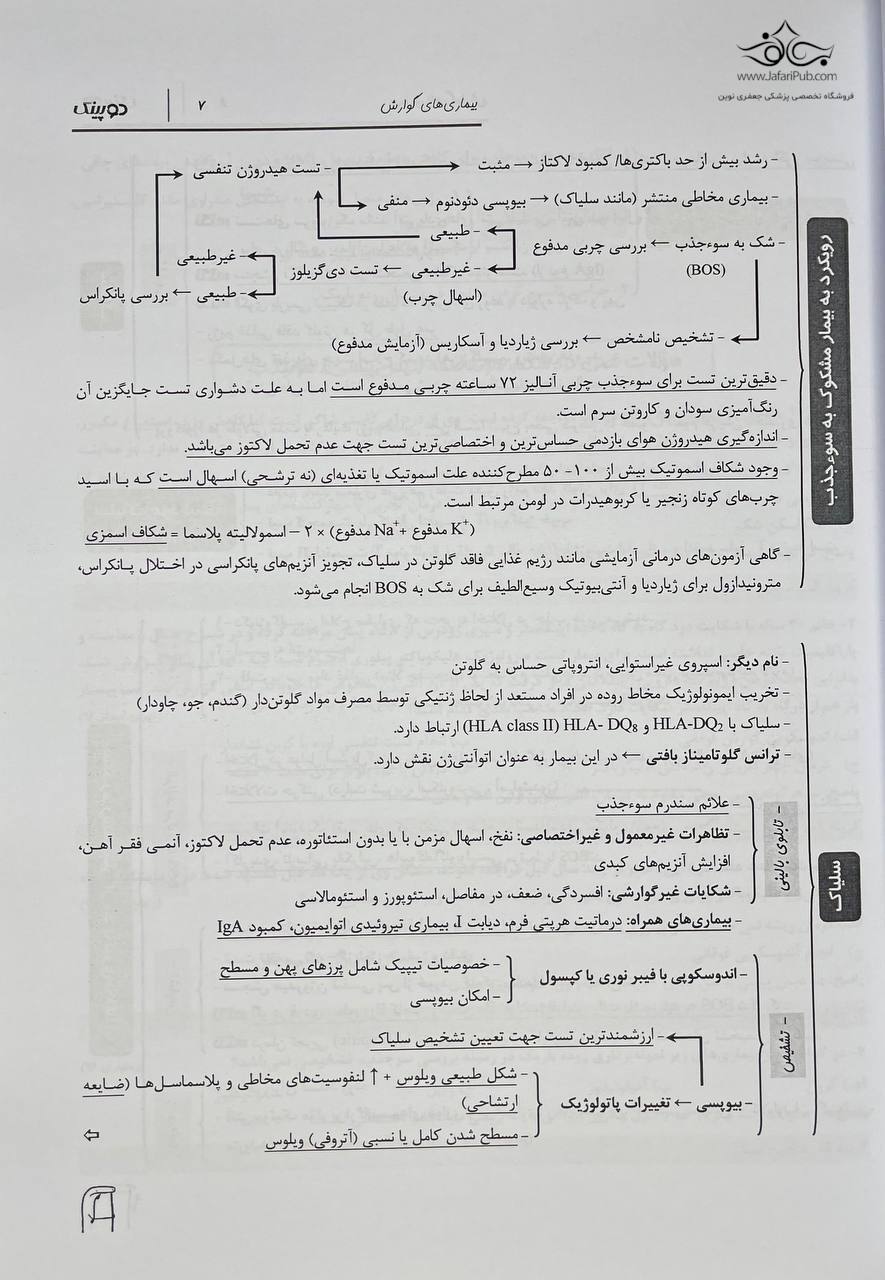 جعفری
www.JafariPub.com
فروشگاه تخصصی پزشکی جعفری نوین
بیماری‌های گوارش
۷
دوپینگ
رویکرد به بیمار مشکوک به سوءجذب
- رشد بیش از حد باکتری‌ها/ کمبود لاکتاز → مثبت
- تست هیدروژن تنفسی
- بیماری مخاطی منتشر (مانند سلیاک) → بیوپسی دئودنوم → منفی
- طبیعی
- شک به سوءجذب ← بررسی چربی مدفوع
(BOS)
- غیرطبیعی ← تست دی‌گزیلوز
(اسهال چرب)
- غیرطبیعی
- طبیعی ← بررسی پانکراس
- تشخیص نامشخص ← بررسی ژیاردیا و آسکاریس (آزمایش مدفوع)
- دقیق‌ترین تست برای سوءجذب چربی آنالیز ۷۲ ساعته چربی مدفوع است اما به علت دشواری تست جایگزین آن
رنگ‌آمیزی سودان و کاروتن سرم است.
- اندازه‌گیری هیدروژن هوای بازدمی حساس‌ترین و اختصاصی‌ترین تست جهت عدم تحمل لاکتوز می‌باشد.
- وجود شکاف اسموتیک بیش از ۱۰۰- ۵۰ مطرح‌کننده علت اسموتیک یا تغذیه‌ای (نه ترشحی) اسهال است که با اسید
چرب‌های کوتاه زنجیر یا کربوهیدرات در لومن مرتبط است.
(K⁺ مدفوع + Na⁺ مدفوع) × ۲ – اسمولالیته پلاسما = شکاف اسمزی
- گاهی آزمون‌های درمانی آزمایشی مانند رژیم غذایی فاقد گلوتن در سلیاک، تجویز آنزیم‌های پانکراسی در اختلال پانکراس،
مترونیدازول برای ژیاردیا و آنتی‌بیوتیک وسیع‌الطیف برای شک به BOS انجام می‌شود.
سلیاک
- نام دیگر: اسپروی غیراستوایی، انتروپاتی حساس به گلوتن
- تخریب ایمونولوژیک مخاط روده در افراد مستعد از لحاظ ژنتیکی توسط مصرف مواد گلوتن‌دار (گندم، جو، چاودار)
- سلیاک با HLA-DQ₂ و HLA- DQ₈ (HLA class II) ارتباط دارد.
- ترانس گلوتامیناز بافتی ← در این بیمار به عنوان اتوآنتی‌ژن نقش دارد.
- تابلوی بالینی
- علائم سندرم سوءجذب
- تظاهرات غیرمعمول و غیراختصاصی: نفخ، اسهال مزمن با یا بدون استئاتوره، عدم تحمل لاکتوز، آنمی فقر آهن،
افزایش آنزیم‌های کبدی
- شکایات غیرگوارشی: افسردگی، ضعف، در مفاصل، استئوپورز و استئومالاسی
- بیماری‌های همراه: درماتیت هرپتی فرم، دیابت I، بیماری تیروئیدی اتوایمیون، کمبود IgA
- تشخیص
- اندوسکوپی با فیبر نوری یا کپسول
- خصوصیات تیپیک شامل پرزهای پهن و مسطح
- امکان بیوپسی
- ارزشمندترین تست جهت تعیین تشخیص سلیاک
- بیوپسی ← تغییرات پاتولوژیک
- شکل طبیعی ویلوس + ↑ لنفوسیت‌های مخاطی و پلاسماسل‌ها (ضایعه
ارتشاحی)
- مسطح شدن کامل یا نسبی (آتروفی) ویلوس
⇦